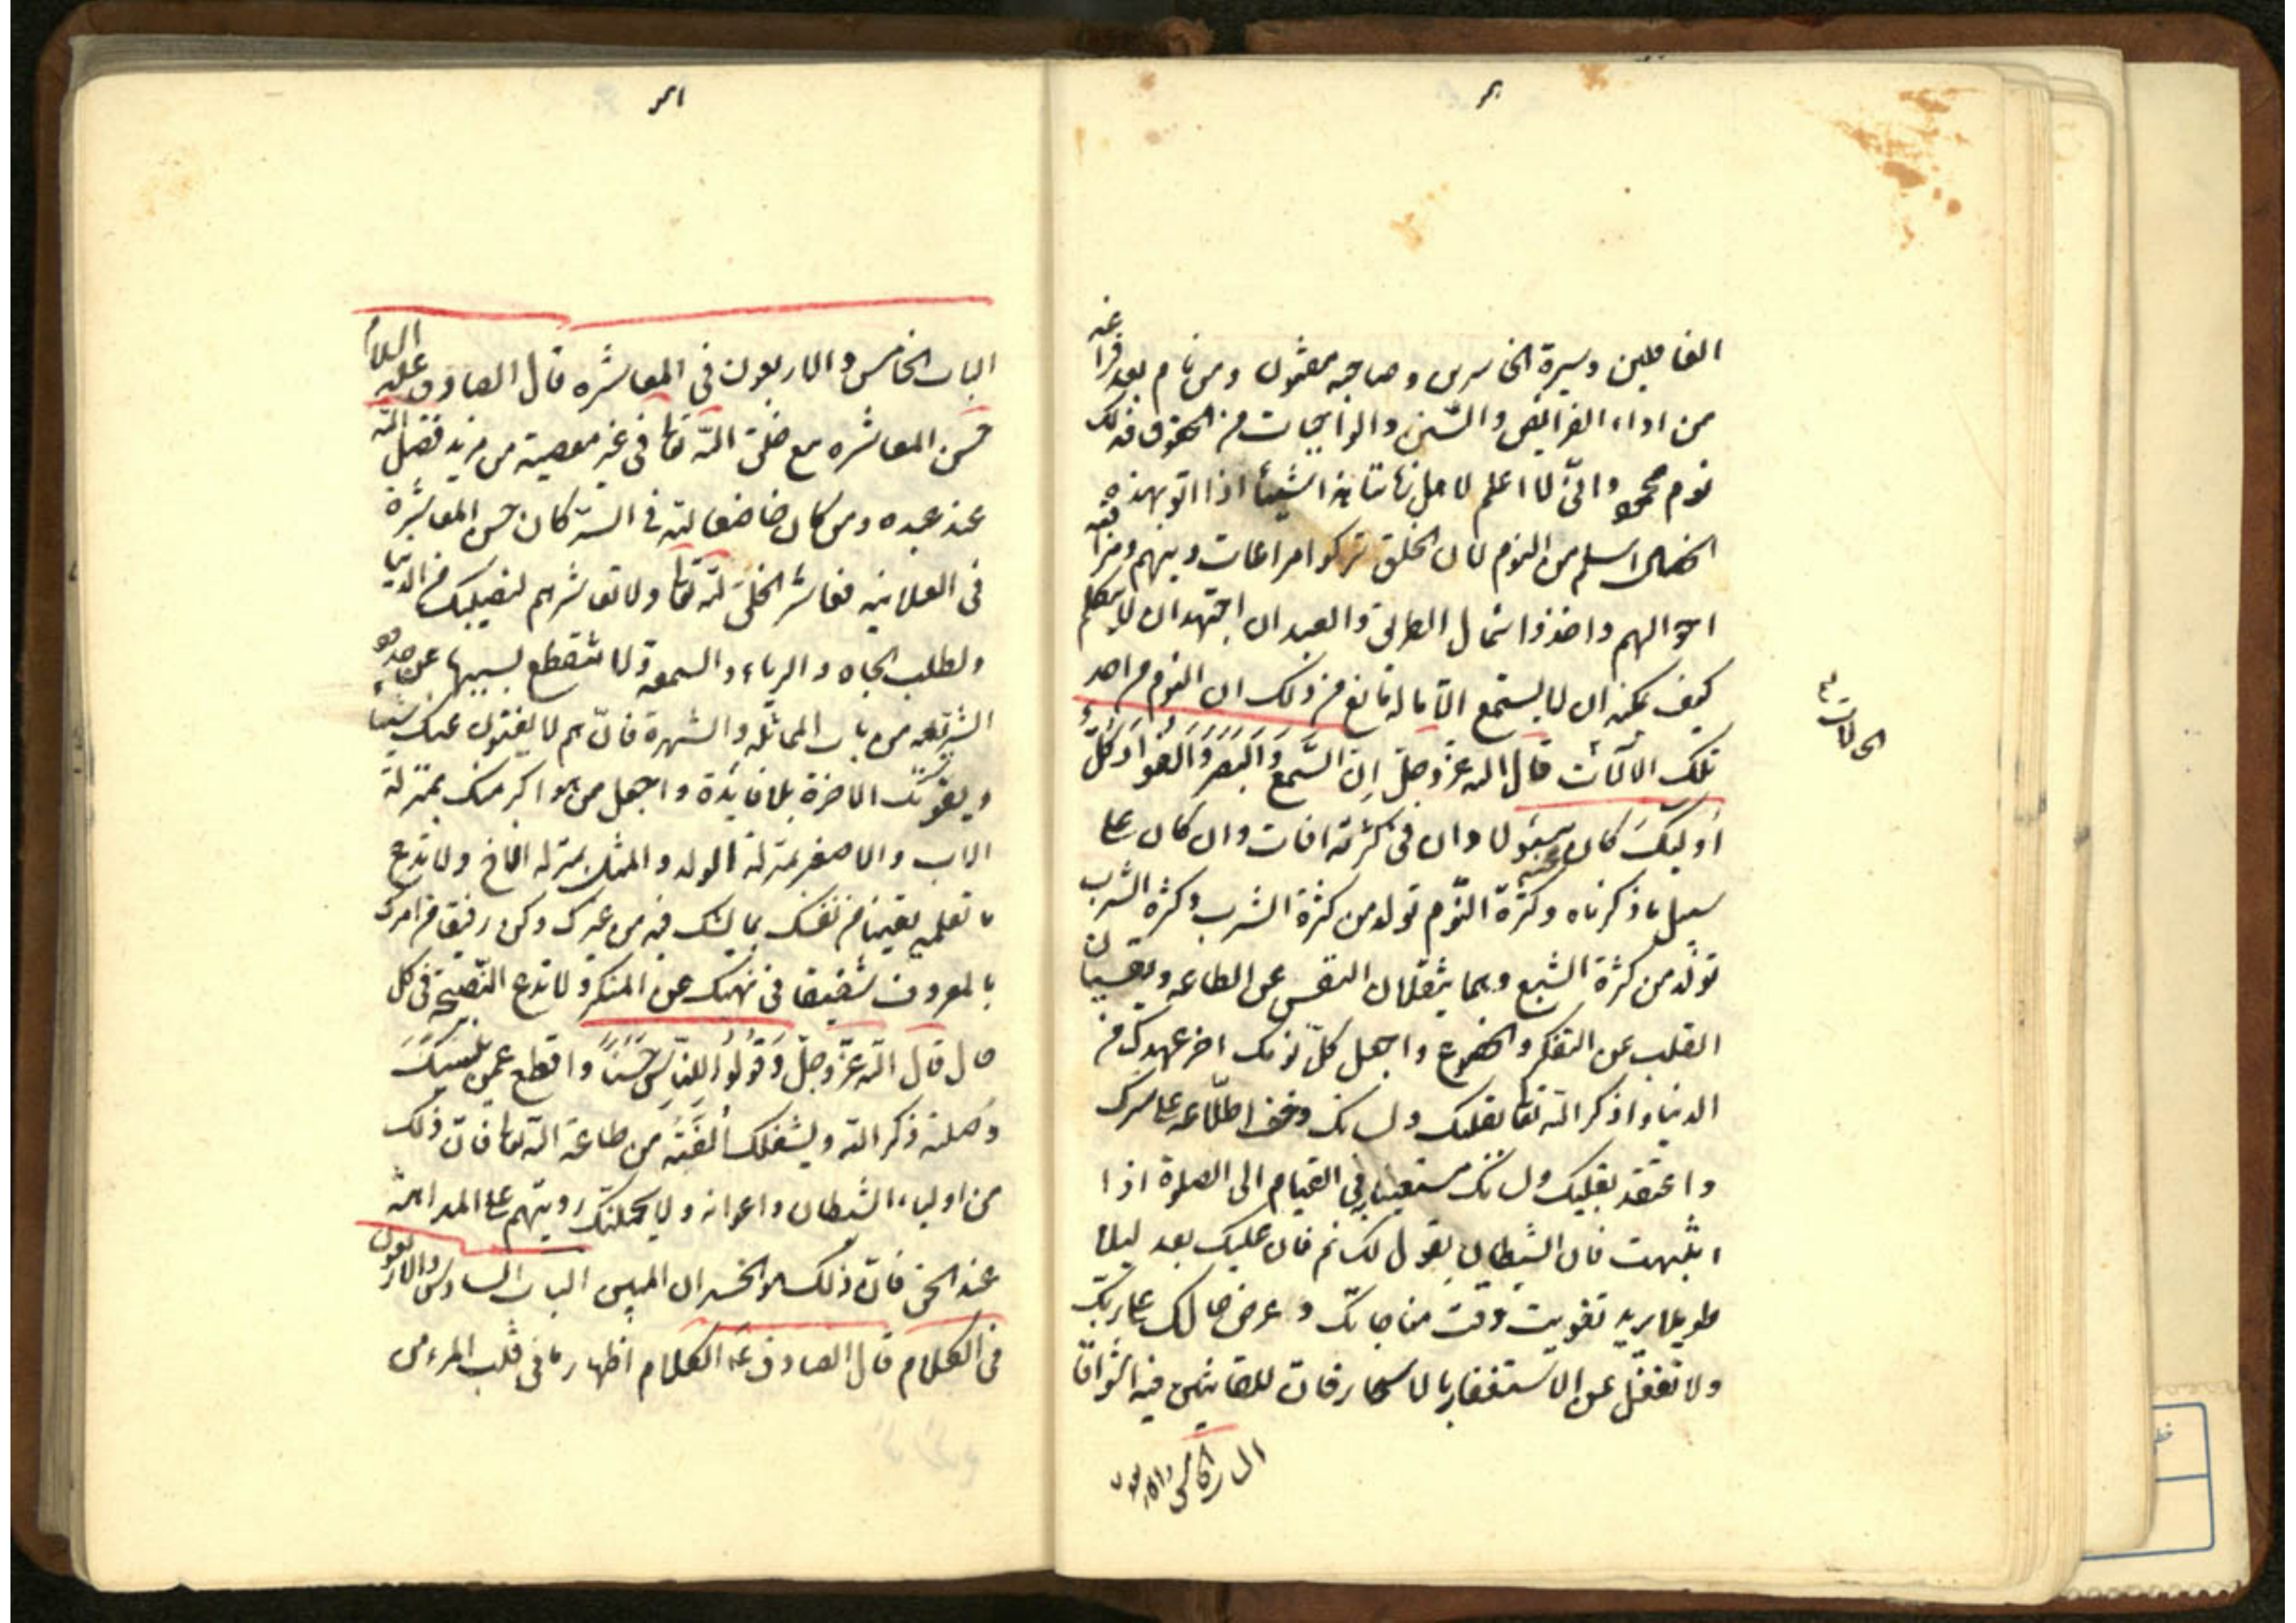 الغافلين وسيرة الخاسرين وصاحبه مغبون ومن نام بعد فراغه
من اداء الفرائض والسّنن والواجبات من الحقوق فذلك
نوم محمود وانّى لا اعلم لاهل زماننا هذا شيئا اذا اتوا بهذه
الخصال اسلم من النوم لان الخلق تركوا مراعات دينهم ومراقبة
احوالهم واخذوا شمال الطريق والعبد ان اجتهد ان لا يتكلم
كيف يمكنه ان لا يستمع الّا ما له مانع من ذلك ان النوم من احد
تلك الآلآت قال الله عزّ وجلّ اِنّ السَّمعَ وَالبَصَرَ وَالفُؤادَ كُلُّ
اُولئِكَ كانَ عنه مسؤلا وان فى كثرته افات وان كان على
سبيل ما ذكرناه وكثرة النّوم تولد من كثرة الشرب وكثرة الشرب
تولّد من كثرة الشبع وهما يثقلان النفس عن الطاعه ويقسيان
القلب عن التفكر والخضوع واجعل كلّ نومك اخر عهدك من
الدنيا واذكر الله تعا بقلبك ولسانك وخف اطلاعه على سرك
واعتقد بقلبك ولسانك مستعينا به في القيام الى الصلوة اذا
انتبهت فان الشيطان يقول لك نم فان عليك بعد ليلا
طويلا يريد تفويت وقت مناجاتك وعرض حالك على ربّك
ولا تغفل عن الاستغفار بالاسحار فانّ للقانتين فيه اشواقا
الباب الخامس والاربعون
الحالات
الباب الخامس والاربعون في المعاشره قال الصادق عليه السلام
حسن المعاشره مع خلق الله تعا فى غير معصية من مزيد فضل الله
عند عبده ومن كان خاضعا لله فى السرّ كان حسن المعاشرة
فى العلانيه فعاشر الخلق لله تعا ولا تعاشرهم لنصيبك من الدنيا
ولطلب الجاه والرياء والسمعة ولا تسقطع بسببها عن حدود
الشريعه من باب المماثله والشهرة فانّهم لا يغنون عنك شيئا
ويفوتك الاخرة بلا فايدة واجعل من هو اكبر منك بمنزلة
الاب والاصغر بمنزلة الولد والمثل بمنزله الاخ ولا تدع
ما تعلمه يقينا من نفسك بما يشك فيه من غيرك وكن رفيقا من امرك
بالمعروف شفيقا فى نهيك عن المنكر ولا تدع النّصيحة فى كل
حال قال الله عزّ وجلّ وَقُولُوا لِلنّاسِ حُسْنًا واقطع عمن ينسيك
وصلته ذكر الله ويشغلك اُلفَتُه من طاعة الله تعا فانّ ذلك
من اولياء الشيطان واعوانه ولا يحملنك رويتهم على المداهنة
عند الحق فانّ ذلك هو الخسران المبين الباب السادس والاربعون
فى الكلام قال الصادق عه الكلام اظهار ما فى قلب المرء من